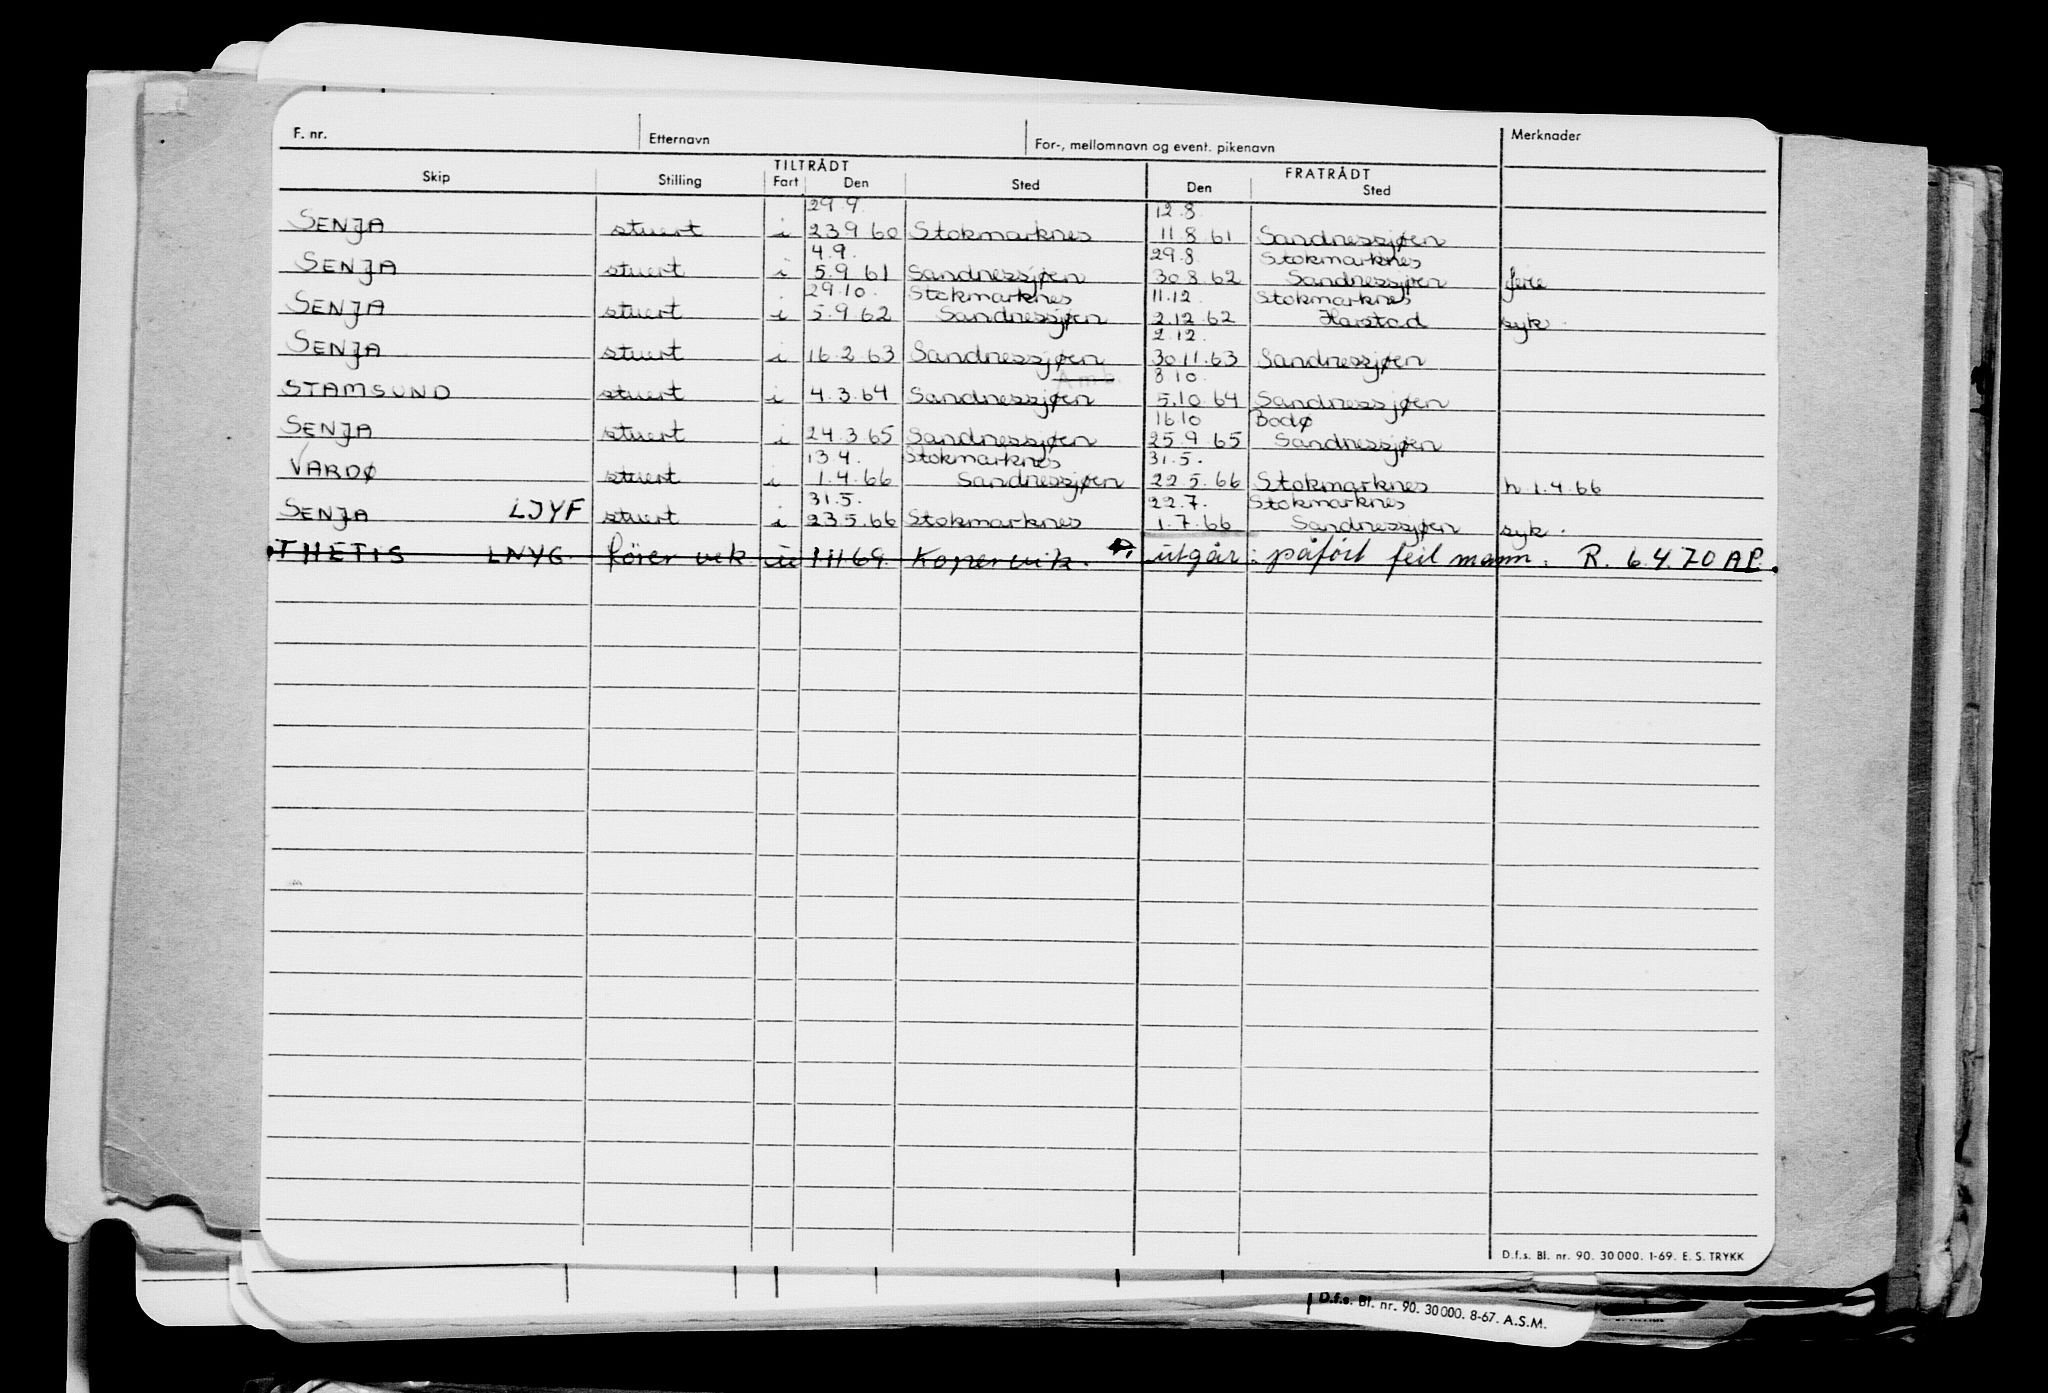 F. nr. Etternavn For-, mellomnavn og event. pikenavn Merknader
TILTRÅDT FRATRÅDT
Skip Stilling Fart Den Sted Den Sted
29.9. 12.8.
SENJA stuert i 23.9.60 Stokmarknes 11.8.61 Sandnessjøen
4.9. 29.8. Stokmarknes
SENJA stuert i 5.9.61 Sandnessjøen 30.8.62 Sandnessjøen ferie
29.10. Stokmarknes 11.12. Stokmarknes
SENJA stuert i 5.9.62 Sandnessjøen 2.12.62 Harstad syk.
2.12.
SENJA stuert i 16.2.63 Sandnessjøen 30.11.63 Sandnessjøen
Amb. 8.10.
STAMSUND stuert i 4.3.64 Sandnessjøen 5.10.64 Sandnessjøen
16.10 Bodø
SENJA stuert i 24.3.65 Sandnessjøen 25.9.65 Sandnessjøen
13.4. Stokmarknes 31.5.
VARDØ stuert i 1.4.66 Sandnessjøen 22.5.66 Stokmarknes h 1.4.66
31.5. 22.7. Stokmarknes
SENJA LJYF stuert i 23.5.66 Stokmarknes 1.7.66 Sandnessjøen syk.
THETIS LNYG u 1 11 69 Kopervik. utgår: påført feil mann. R. 6.4.70 AP.
D.f.s. Bl. nr. 90. 30 000. 1-69. E. S. TRYKK
D.f.s. Bl. nr. 90. 30 000. 8-67. A.S.M.